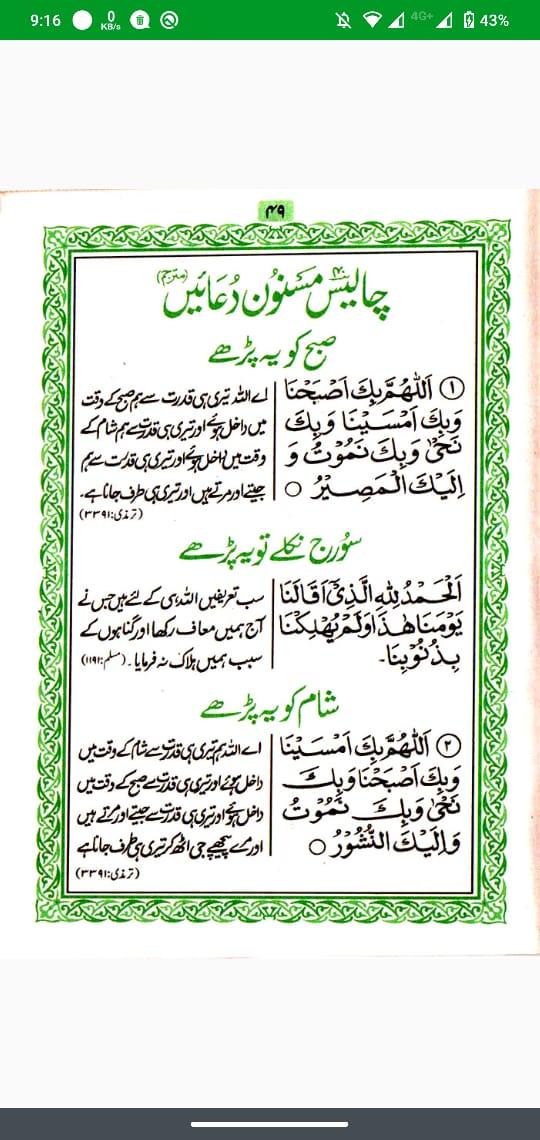 9:16
0
KB/s
4G+
43%
۴۹
چالیس ۴۰ مسنون دعائیں (مترجم)
صبح کو یہ پڑھے
① اَللّٰهُمَّ بِكَ اَصْبَحْنَا
وَبِكَ اَمْسَيْنَا وَبِكَ
نَحْيٰ وَبِكَ نَمُوْتُ وَ
اِلَيْكَ الْمَصِيْرُ ○
اے اللہ تیری ہی قدرت سے ہم صبح کے وقت
میں داخل ہوئے اور تیری ہی قدرت سے ہم شام کے
وقت میں داخل ہوئے اور تیری ہی قدرت سے ہم
جیتے اور مرتے ہیں اور تیری ہی طرف جانا ہے۔
(ترمذی:۳۳۹۱)
سورج نکلے تو یہ پڑھے
اَلْحَمْدُ لِلّٰهِ الَّذِيْ اَقَالَنَا
يَوْمَنَا هٰذَا وَلَمْ يُهْلِكْنَا
بِذُنُوْبِنَا۔
سب تعریفیں اللہ ہی کے لئے ہیں جس نے
آج ہمیں معاف رکھا اور گناہوں کے
سبب ہمیں ہلاک نہ فرمایا۔ (مسلم:۱۱۹۱)
شام کو یہ پڑھے
② اَللّٰهُمَّ بِكَ اَمْسَيْنَا
وَبِكَ اَصْبَحْنَا وَبِكَ
نَحْيٰ وَبِكَ نَمُوْتُ
وَاِلَيْكَ النُّشُوْرُ ○
اے اللہ ہم تیری ہی قدرت سے شام کے وقت میں
داخل ہوئے اور تیری ہی قدرت سے صبح کے وقت میں
داخل ہوئے اور تیری ہی قدرت سے جیتے اور مرتے ہیں
اور مرے پیچھے جی اٹھ کر تیری ہی طرف جانا ہے
(ترمذی:۳۳۹۱)